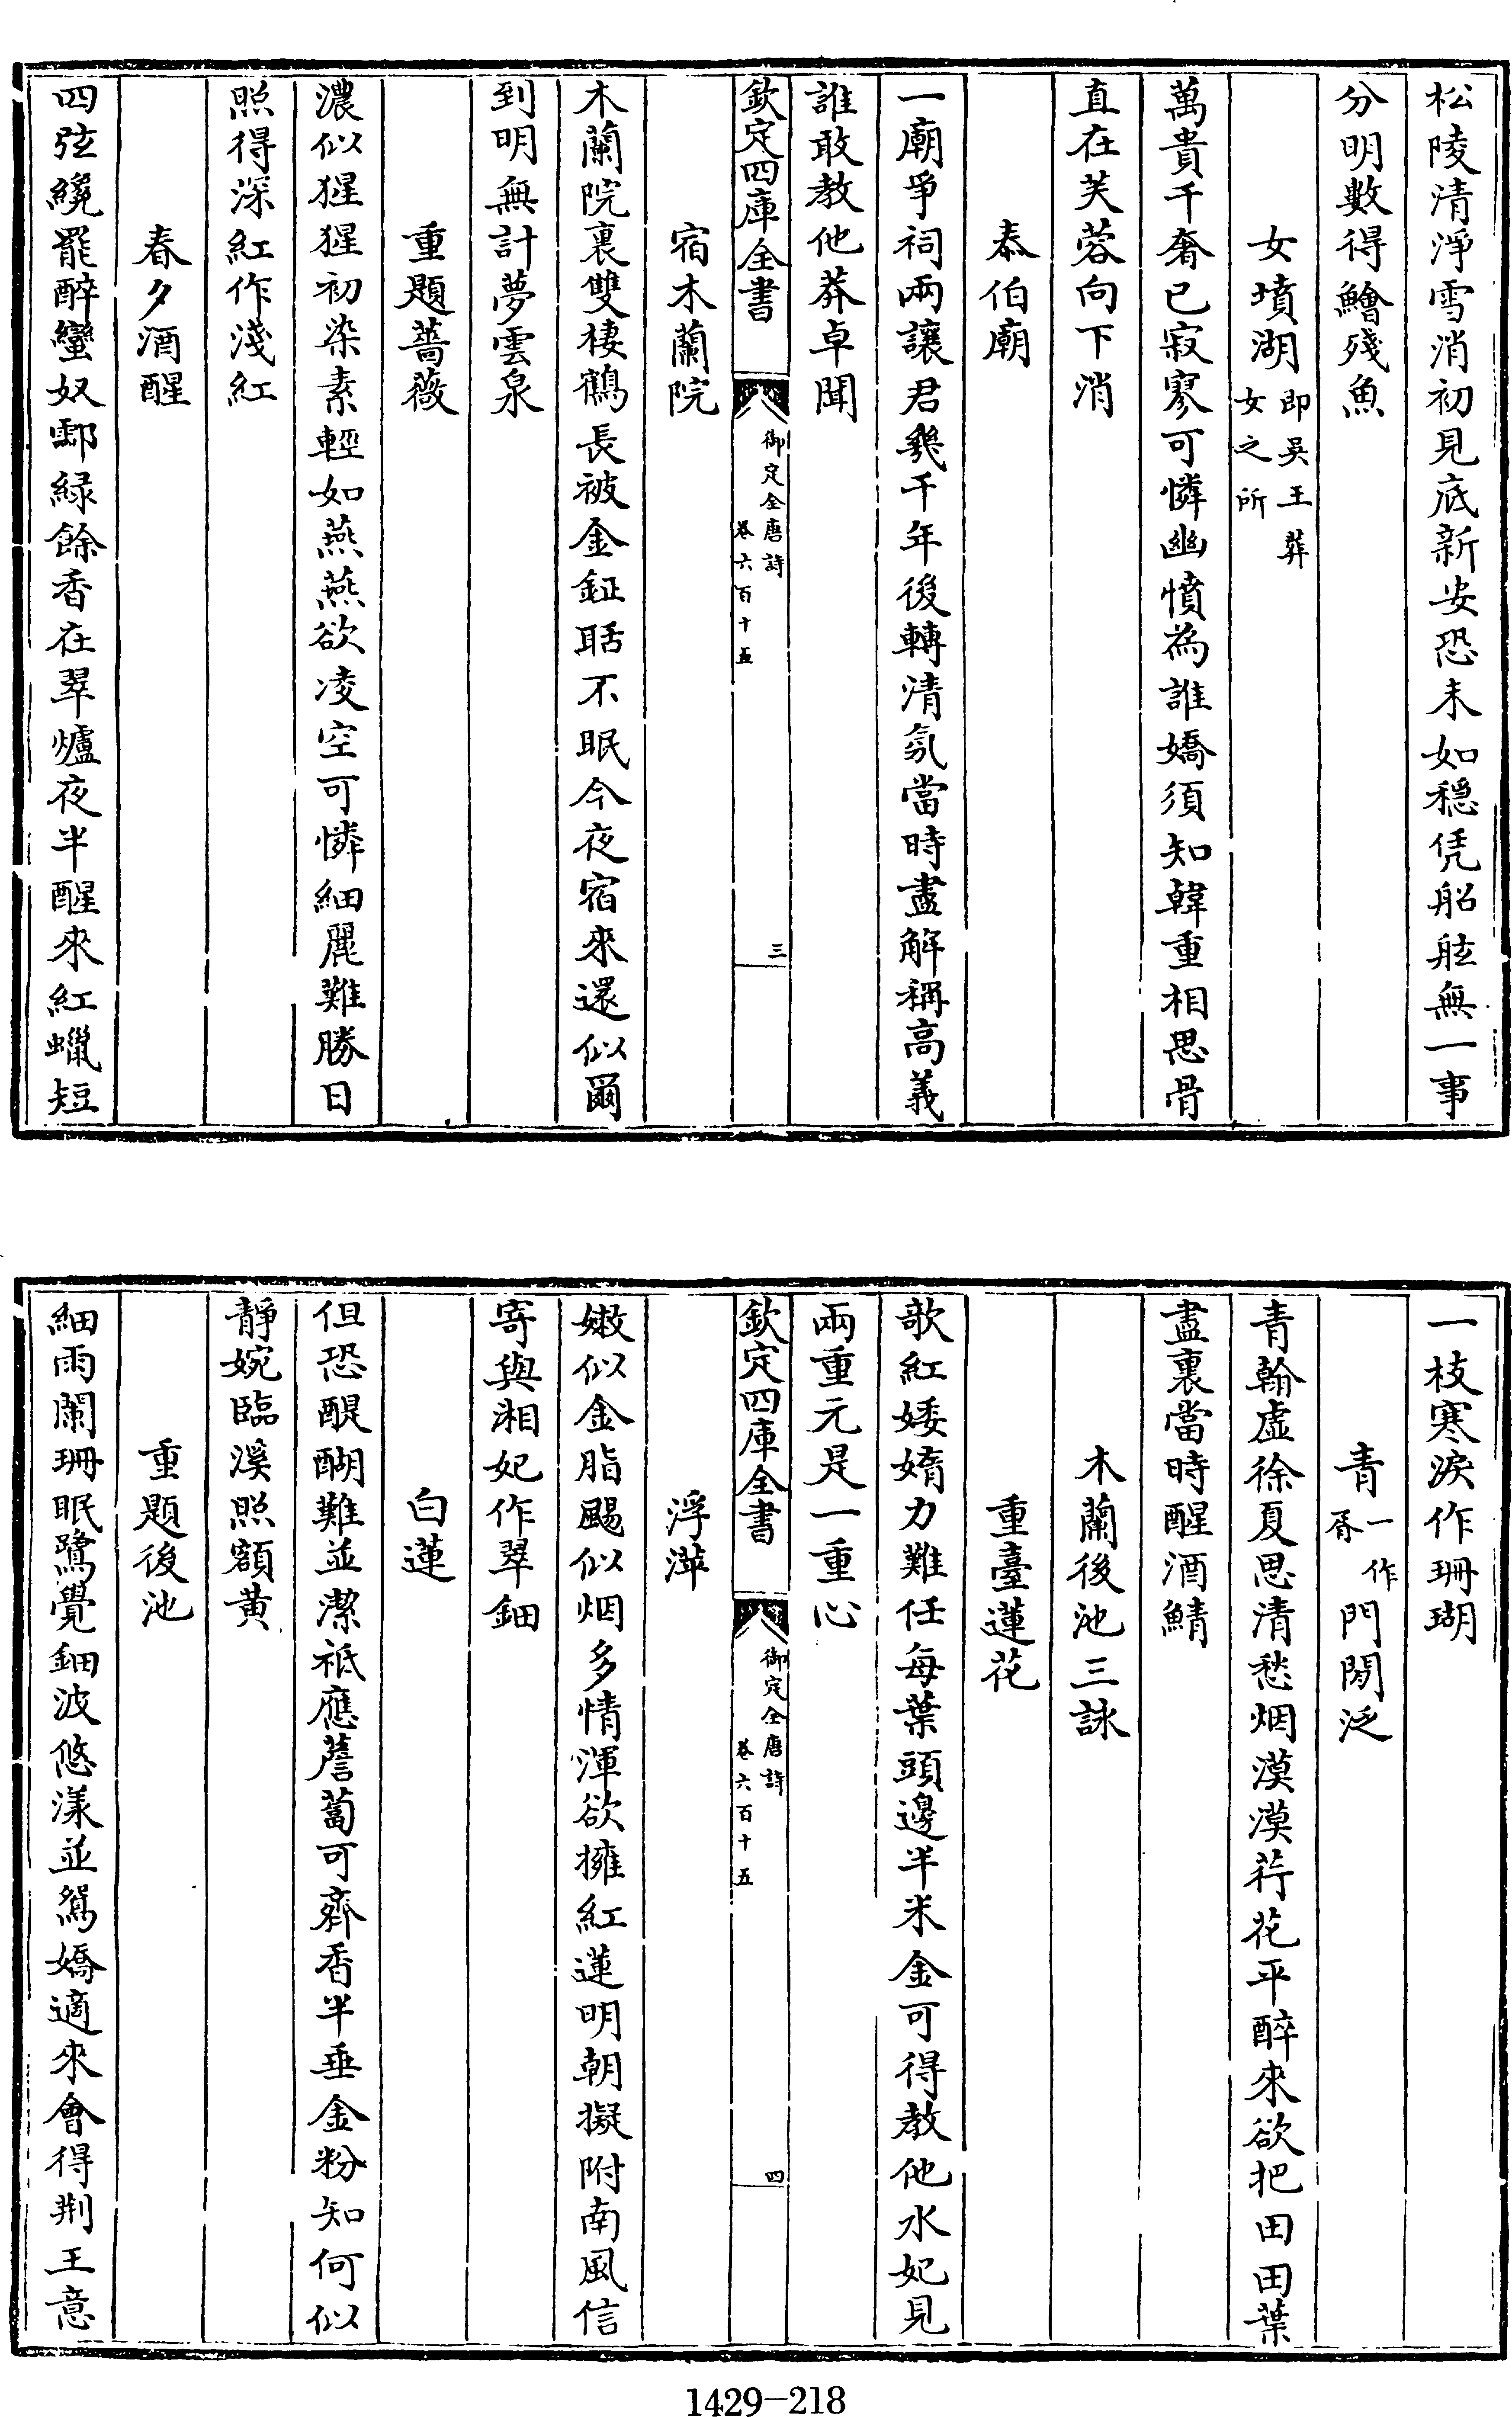 松陵清淨雪消初見底新安恐未如穩凭船舷無一事
分明數得鱠殘魚
女墳湖即吳王葬女之所
萬貴千奢已寂寥可憐幽憤為誰嬌須知韓重相思骨
直在芙蓉向下消
泰伯廟
一廟爭祠兩讓君幾千年後轉清氛當時盡解稱高義
誰敢教他莽卓聞
欽定四庫全書
御定全唐詩
卷六百十五
三
宿木蘭院
木蘭院裏雙棲鶴長被金鉦聒不眠今夜宿來還似爾
到明無計夢雲泉
重題薔薇
濃似猩猩初染素輕如燕燕欲凌空可憐細麗難勝日
照得深紅作淺紅
春夕酒醒
四弦纔罷醉蠻奴酃緑餘香在翠爐夜半醒來紅蠟短
一枝寒淚作珊瑚
青一作胥門閒泛
青翰虛徐夏思清愁烟漠漠荇花平醉來欲把田田葉
盡裏當時醒酒鯖
木蘭後池三詠
重臺蓮花
歌紅婑媠力難任每葉頭邊半米金可得教他水妃見
兩重元是一重心
欽定四庫全書
御定全唐詩
卷六百十五
四
浮萍
嫩似金脂颺似烟多情渾欲擁紅蓮明朝擬附南風信
寄與湘妃作翠鈿
白蓮
但恐醍醐難並潔祗應薝蔔可齊香半垂金粉知何似
靜婉臨溪照額黄
重題後池
細雨闌珊眠鷺覺鈿波悠漾並鴛嬌適來會得荆王意
1429-218